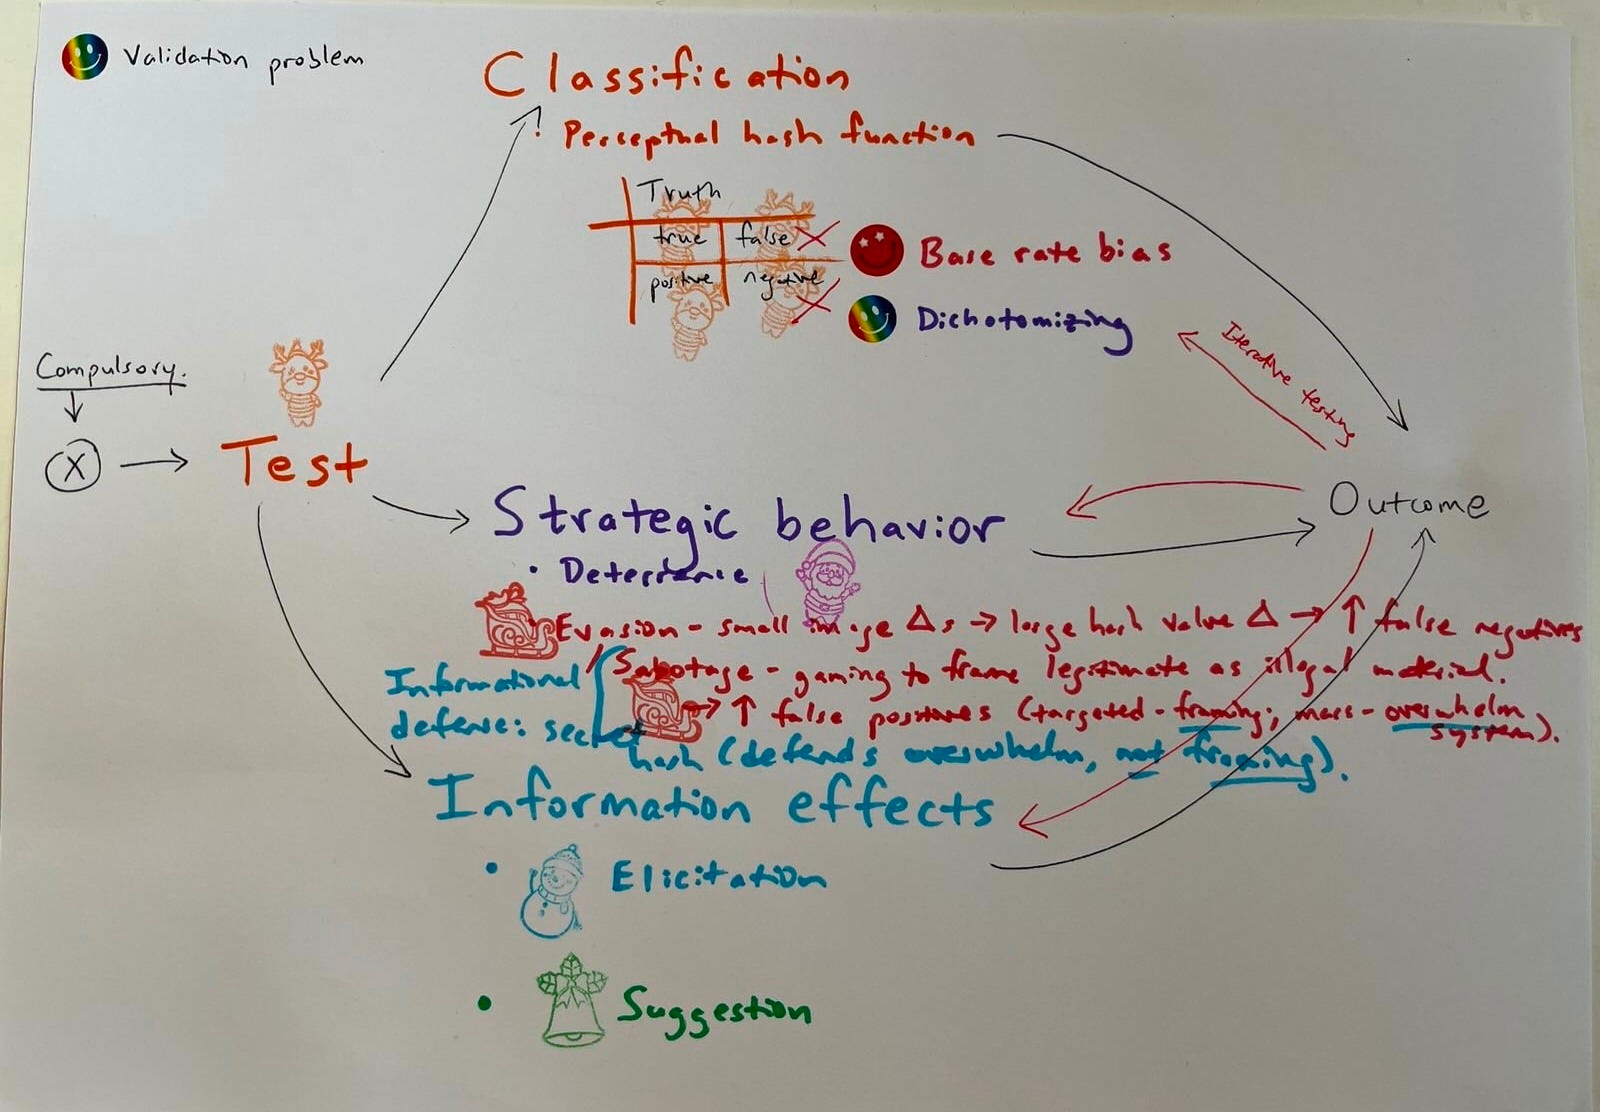 Validation problem
Classification
· Perceptual hash function
Truth
true false
positive negative
Base rate bias
Dichotomizing
Iterative testing
Compulsory.
X
Test
Outcome
Strategic behavior
· Deterrence
Evasion - small image Δs → large hash value Δ → ↑ false negatives
/ Sabotage - gaming to frame legitimate as illegal material.
→ ↑ false positives (targeted - framing; mass - overwhelm system).
Informational
defense: secret
hash (defends overwhelm, not framing).
Information effects
• Elicitation
• Suggestion